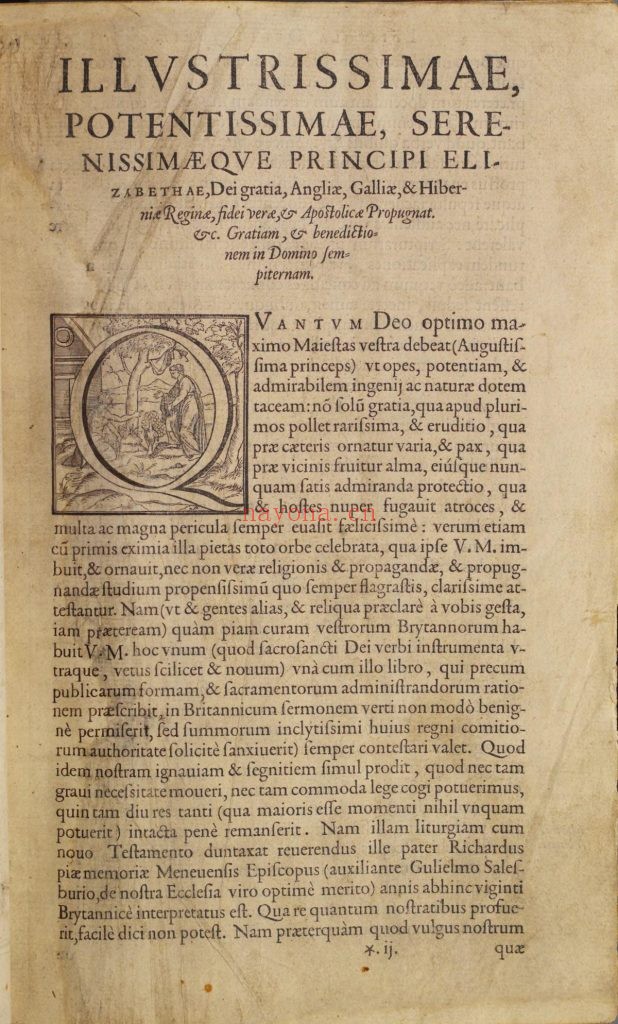 ILLVSTRISSIMAE,
POTENTISSIMAE, SERE-
NISSIMÆQVE PRINCIPI ELI-
ZABETHAE, Dei gratia, Angliæ, Galliæ, & Hiber-
niæ Reginæ, fidei veræ, & Apoſtolicæ Propugnat.
&c. Gratiam, & benedictio-
nem in Domino ſem-
piternam.
QVANTVM Deo optimo ma-
ximo Maieſtas veſtra debeat (Auguſtiſ-
ſima princeps) vt opes, potentiam, &
admirabilem ingenij ac naturæ dotem
taceam: nō ſolū gratia, qua apud pluri-
mos pollet rariſsima, & eruditio, qua
præ cæteris ornatur varia, & pax, qua
præ vicinis fruitur alma, eiúſque nun-
quam ſatis admiranda protectio, qua
& hoſtes nuper fugauit atroces, &
nayona.cn
multa ac magna pericula ſemper euaſit fæliciſsimè: verum etiam
cū primis eximia illa pietas toto orbe celebrata, qua ipſe V. M. im-
buit, & ornauit, nec non veræ religionis & propagandæ, & propug-
nandæ ſtudium propenſiſsimū quo ſemper flagraſtis, clariſsime at-
teſtantur. Nam (vt & gentes alias, & reliqua præclarè à vobis geſta,
iam præteream) quàm piam curam veſtrorum Brytannorum ha-
buit V. M. hoc vnum (quod ſacroſancti Dei verbi inſtrumenta v-
traque, vetus ſcilicet & nouum) vnà cum illo libro, qui precum
publicarum formam, & ſacramentorum adminiſtrandorum ratio-
nem præſcribit, in Britannicum ſermonem verti non modò benig-
nè permiſerit, ſed ſummorum inclytiſsimi huius regni comitio-
rum authoritate ſolicitè ſanxiuerit) ſemper conteſtari valet. Quod
idem noſtram ignauiam & ſegnitiem ſimul prodit, quod nec tam
graui neceſsitate moueri, nec tam commoda lege cogi potuerimus,
quin tam diu res tanti (qua maioris eſſe momenti nihil vnquam
potuerit) intacta penè remanſerit. Nam illam liturgiam cum
nouo Teſtamento duntaxat reuerendus ille pater Richardus
piæ memoriæ Meneuenſis Epiſcopus (auxiliante Gulielmo Saleſ-
burio, de noſtra Eccleſia viro optimè merito) annis abhinc viginti
Brytannicè interpretatus eſt. Qua re quantum noſtratibus profue-
rit, facilè dici non poteſt. Nam præterquàm quod vulgus noſtrum
*. ij. quæ